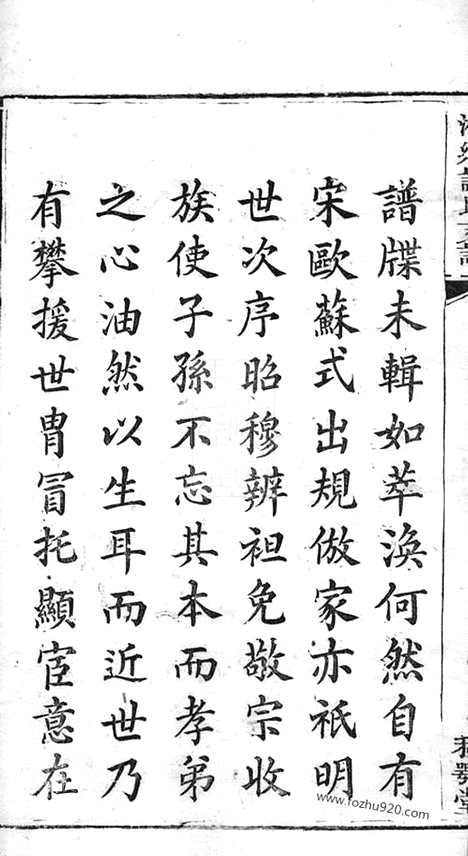 譜牒未輯如萃渙何然自有
宋歐蘇式出規倣家亦祇明
世次序昭穆辨袒免敬宗收
族使子孫不忘其本而孝弟
之心油然以生耳而近世乃
有攀援世胄冒托顯宦意在
www.fozhu920.com